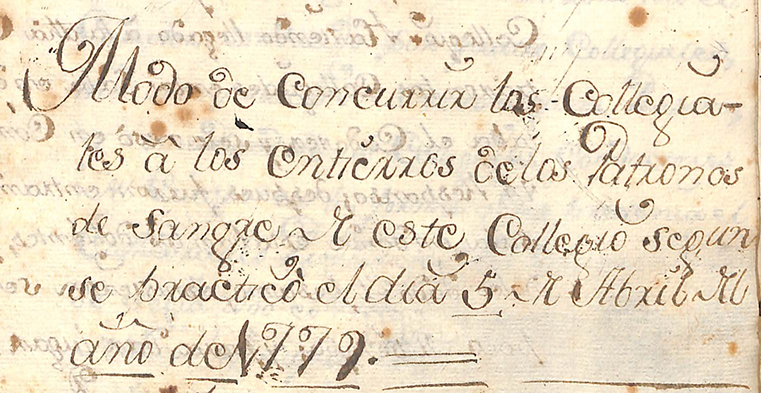 Modo de Concurrir los Collegia-
les à los Entierros de los Patronos
de Sangre de este Collegio segun
se practicò el dia 5 de Abril del
año de 1779.